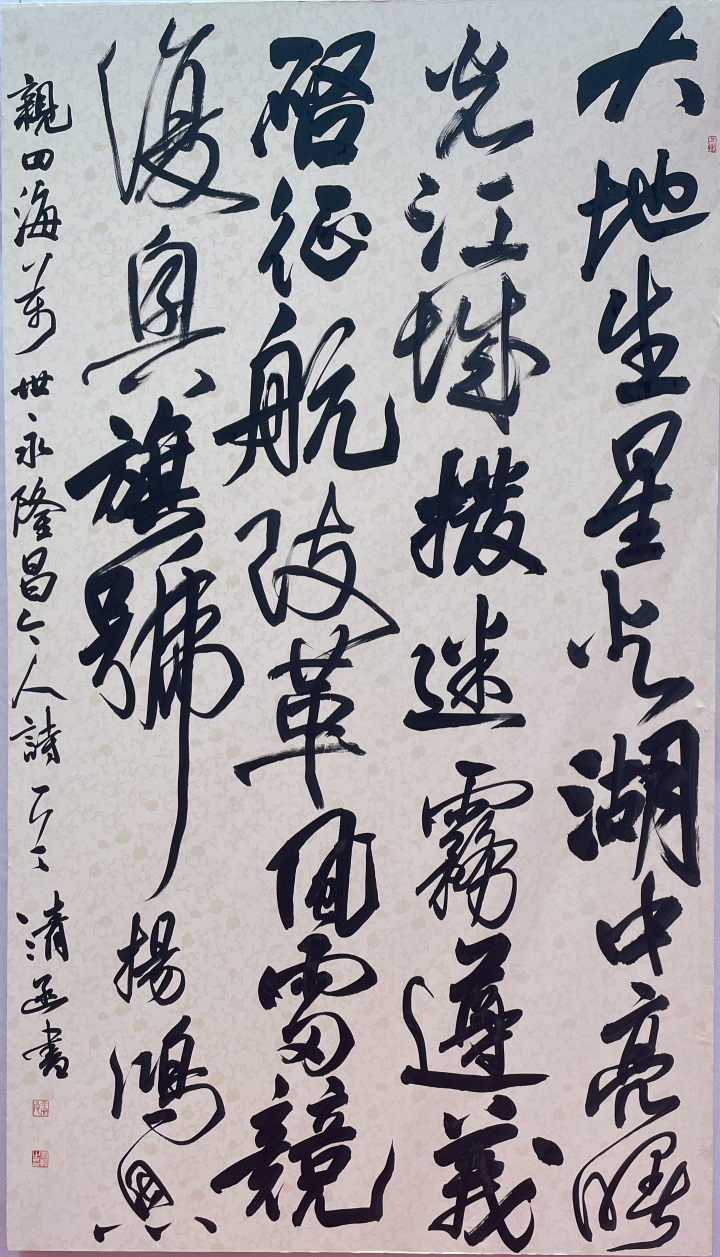 大地生星火湖中亮曙
光江城撥迷霧遵義
啓征航改革風雷競
復興旗號揚鴻與
親四海萬世永隆昌今人詩一首清函書